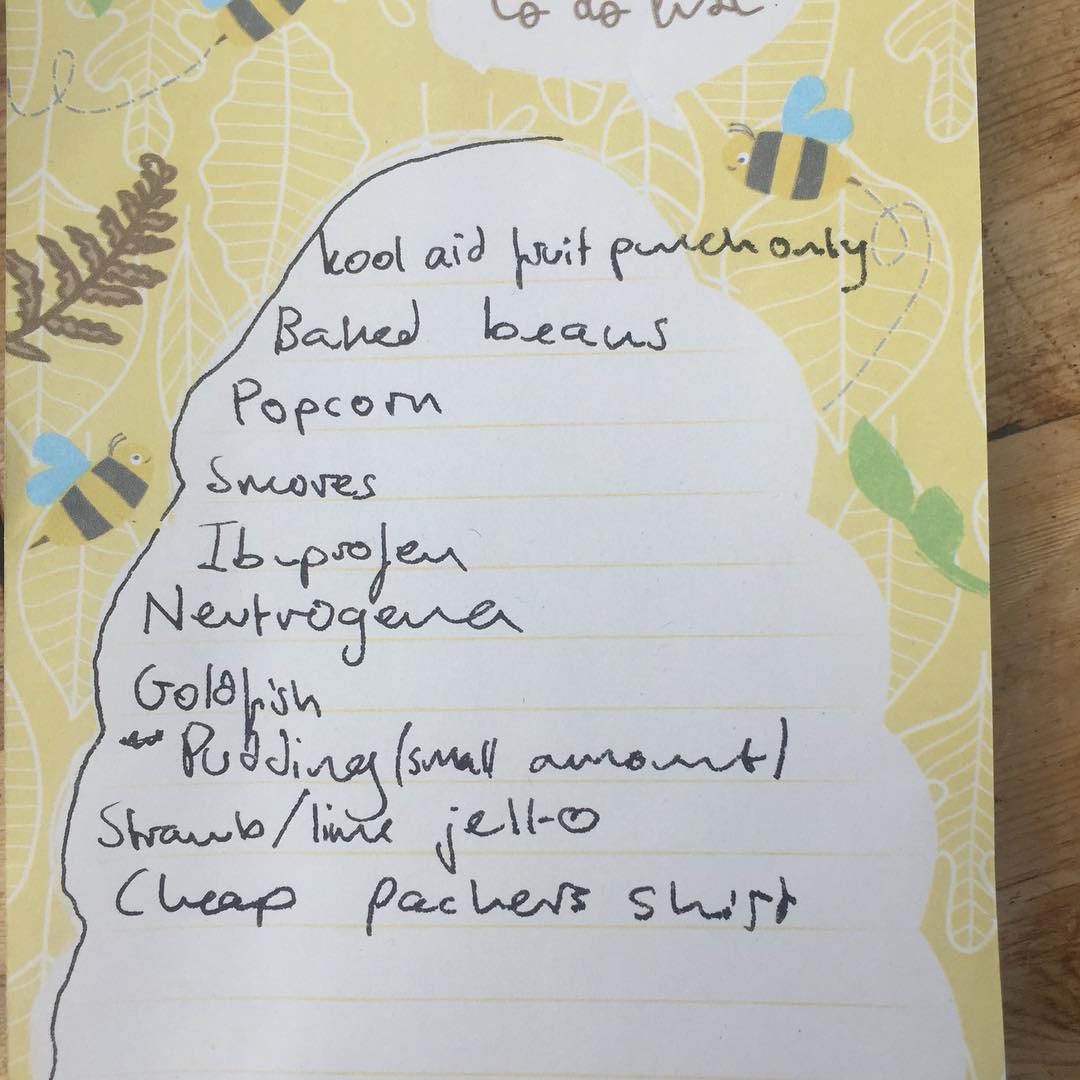 to do list
kool aid fruit punch only
Baked beans
Popcorn
Smores
Ibuprofen
Neutrogena
Goldfish
Pudding (small amount)
Strawb/lime jell-o
Cheap packers shirt